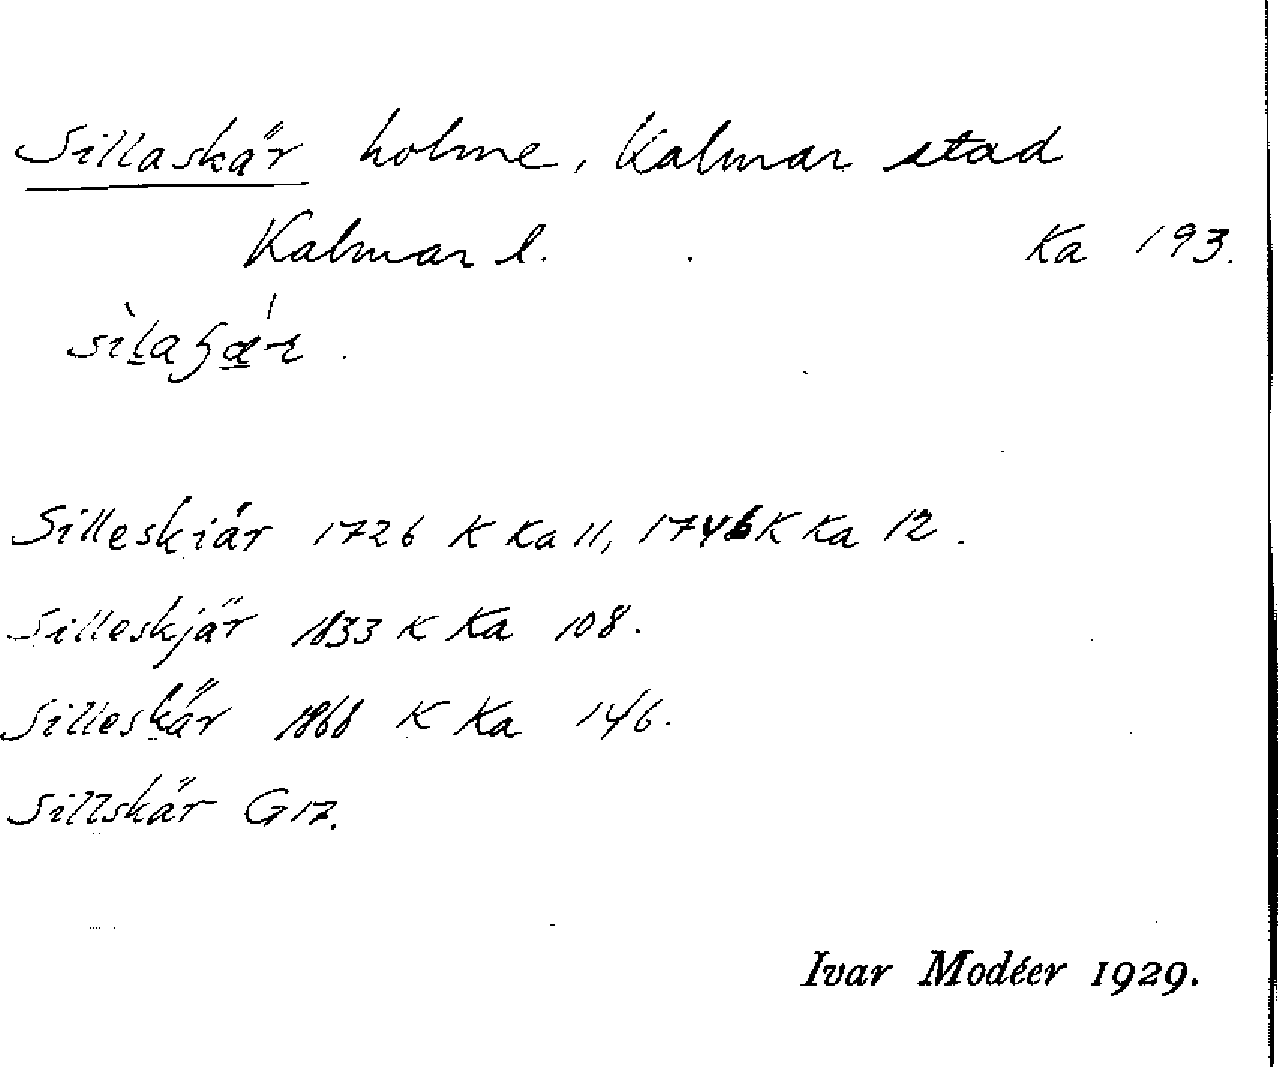 Sillaskär holme, Kalmar stad
Kalmar l. Ka 193.
Silleskiär 1726 K Ka 11, 1746 K Ka 12.
Silleskjär 1833 K Ka 108.
Silleskär 1868 K Ka 146.
Sillskär G 17.
Ivar Modéer 1929.